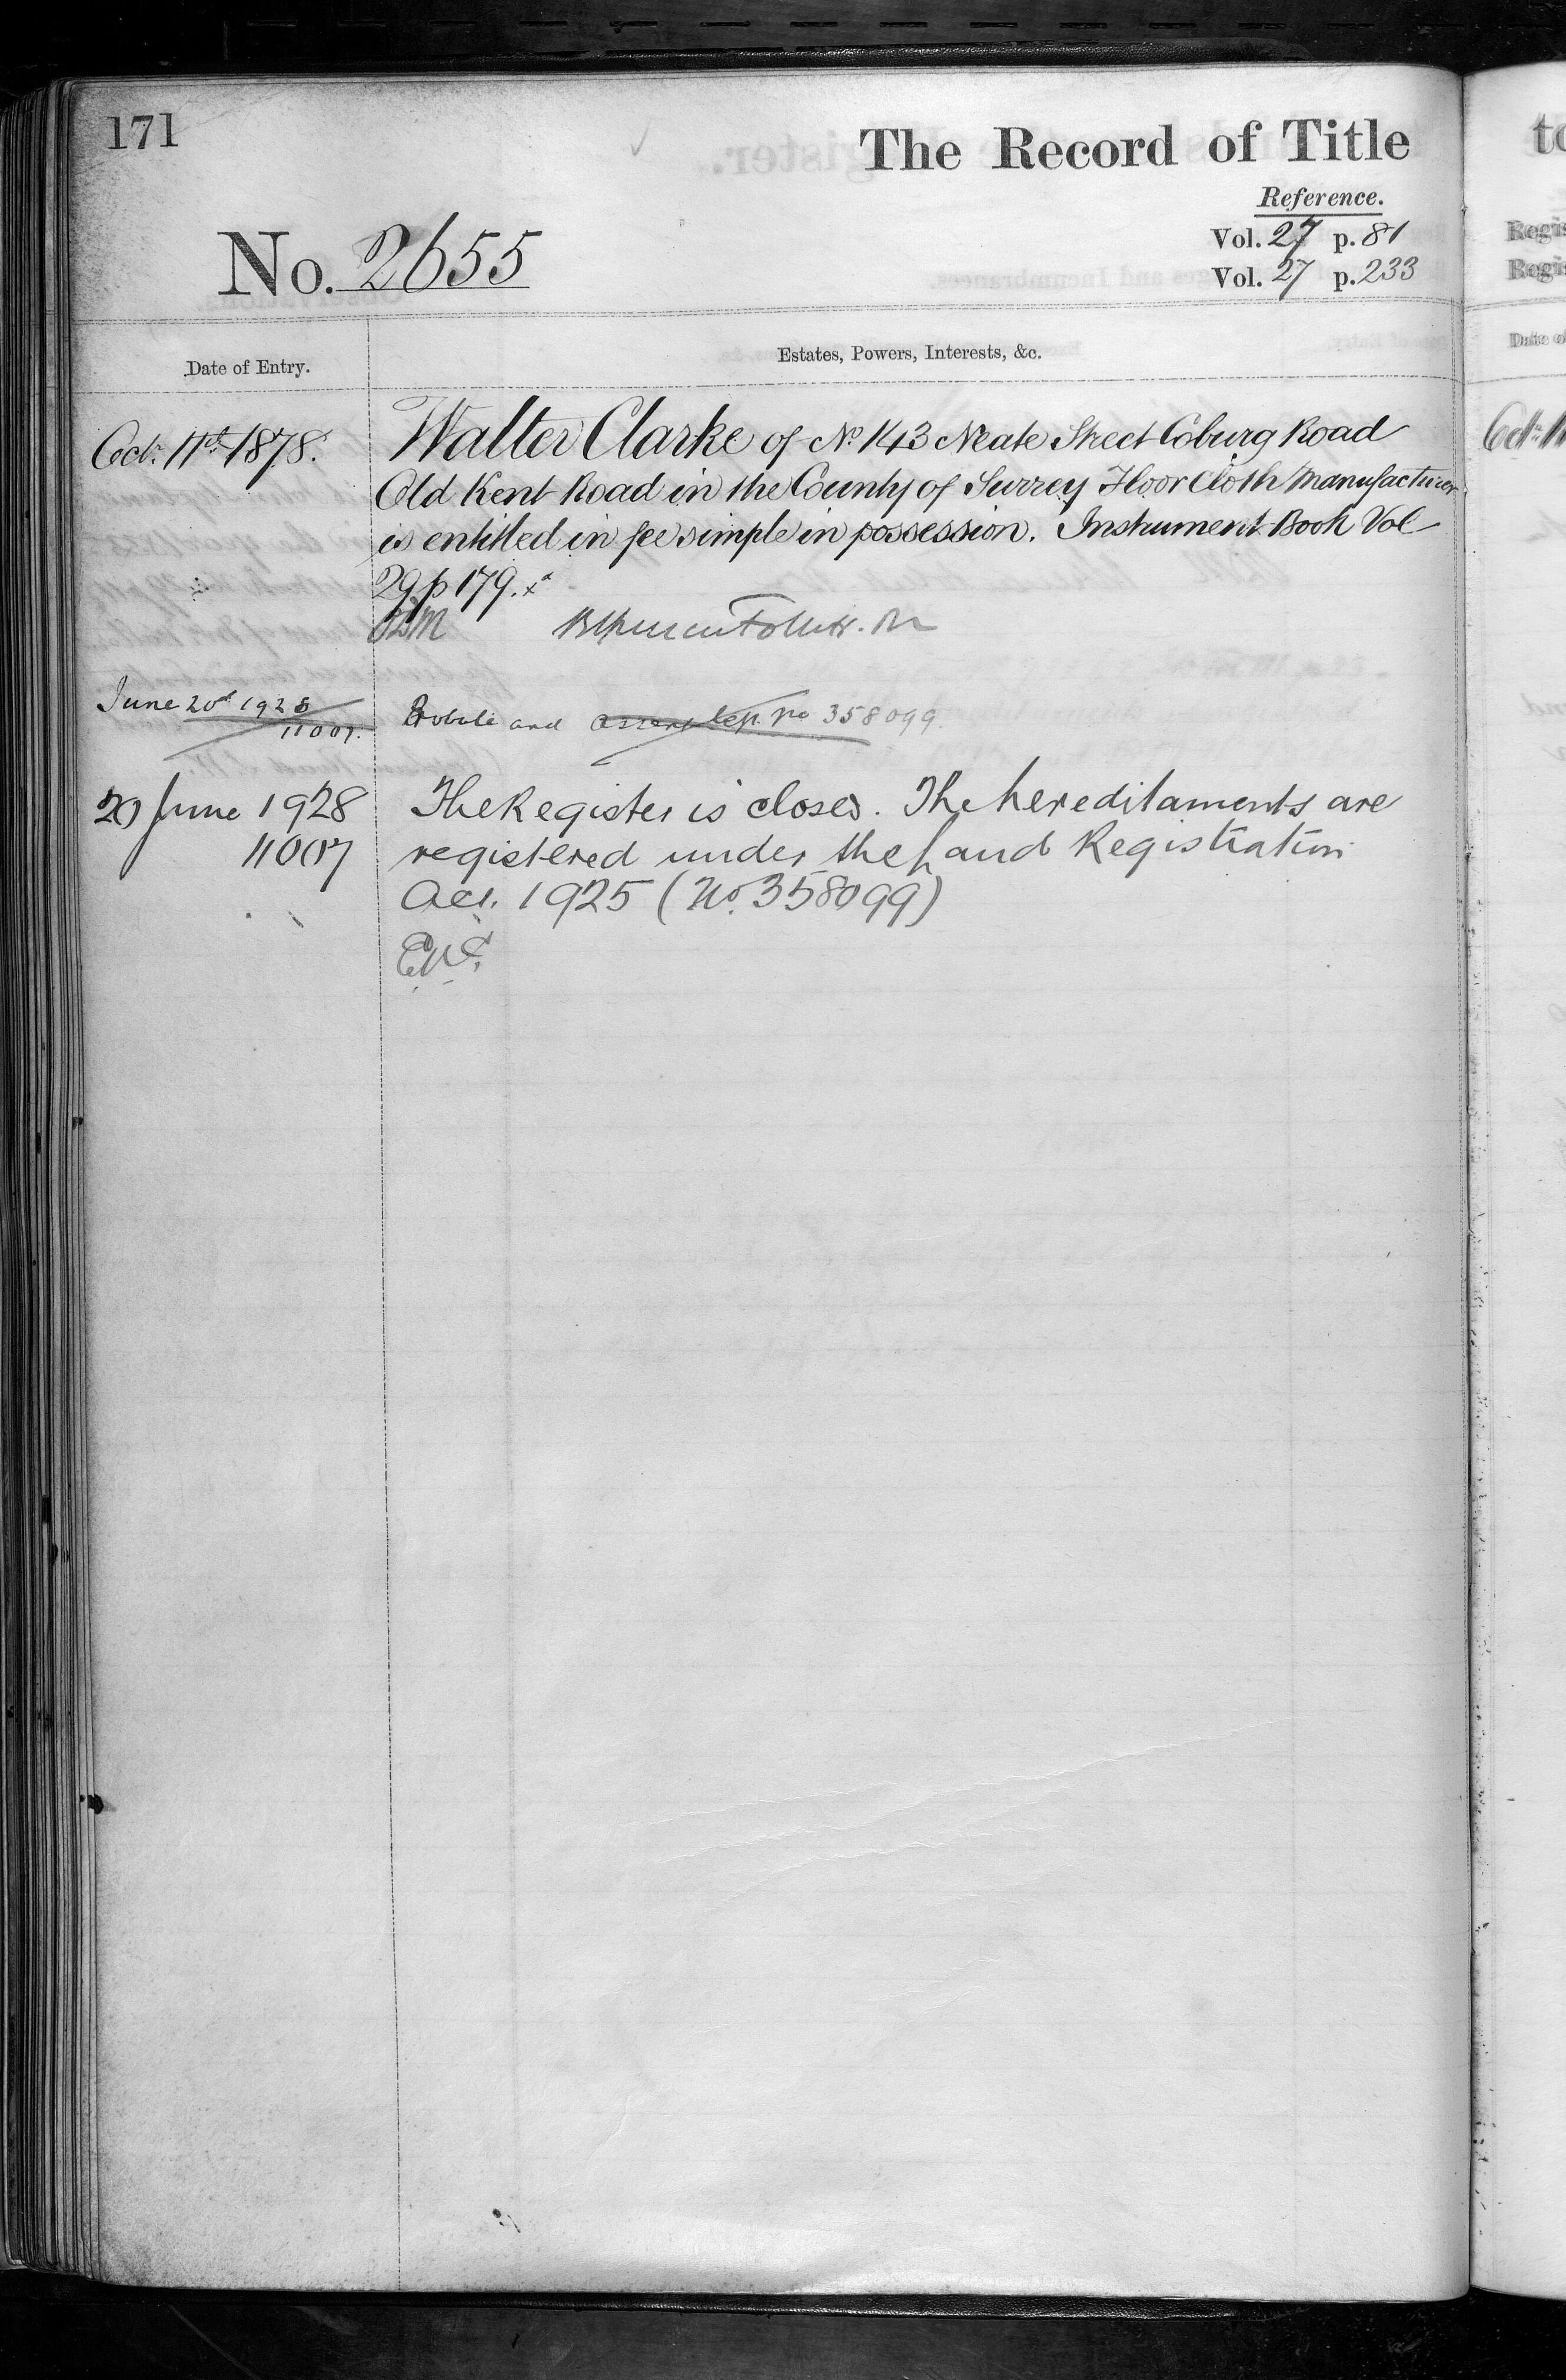 171
The Record of Title
Reference.
No. 2655
Vol. 27 p. 81
Vol. 27 p. 233
Date of Entry.
Estates, Powers, Interests, &c.
Oct: 11th 1878.
Walter Clarke of No 143 Neate Street Coburg Road
Old Kent Road in the County of Surrey Floor Cloth Manufacturer
is entitled in fee simple in possession. Instrument Book Vol
29 p 179.
June 20th 1928
11007.
Probate and assent dep. No 358099.
20 June 1928
11007
The Register is closed. The hereditaments are
registered under the Land Registration
Act. 1925 (No. 358099)
to
Regis
Regis
Date of
Oct: 11